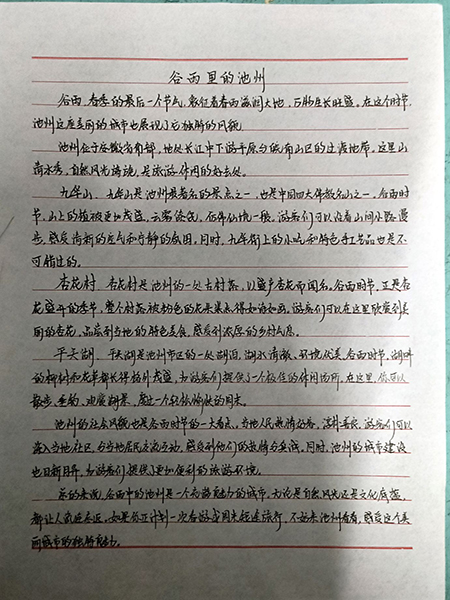 谷雨里的池州
谷雨，春季的最后一个节气，象征着春雨滋润大地，万物生长旺盛。在这个时节，
池州这座美丽的城市也展现了它独特的风貌。
池州位于安徽省南部，地处长江中下游平原与皖南山区的过渡地带。这里山
清水秀，自然风光旖旎，是旅游休闲的好去处。
九华山。九华山是池州最著名的景点之一，也是中国四大佛教名山之一。谷雨时
节，山上的植被更加茂盛，云雾缭绕，仿佛仙境一般。游客们可以沿着山间小路漫
步，感受清新的空气和宁静的氛围。同时，九华街上的小吃和特色手工艺品也是不
可错过的。
杏花村。杏花村是池州的一处古村落，以盛产杏花而闻名。谷雨时节，正是杏
花盛开的季节，整个村落被粉色的花朵装点得如诗如画。游客们可以在这里欣赏到美
丽的杏花，品尝到当地的特色美食，感受到浓厚的乡村气息。
平天湖。平天湖是池州市区的一处湖泊，湖水清澈，环境优美。谷雨时节，湖畔
的柳树和花草都长得格外茂盛，为游客们提供了一个极佳的休闲场所。在这里，你可以
散步、垂钓、观赏湖景，度过一个轻松愉快的周末。
池州的社会风貌也是谷雨时节的一大看点。当地人民热情好客，淳朴善良。游客们可以
深入当地社区，与当地居民交流互动，感受到他们的热情与真诚。同时，池州的城市建设
也日新月异，为游客们提供了更加便利的旅游环境。
总的来说，谷雨中的池州是一个充满魅力的城市。无论是自然风光还是文化底蕴，
都让人流连忘返。如果你正计划一次春游或周末短途旅行，不妨来池州看看，感受这个美
丽城市的独特魅力。